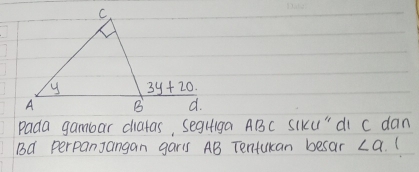 C
y
3y + 20.
A
B
d.
Pada gambar diatas, segitiga ABC siku" di C dan
Bd Perpanjangan garis AB Tentukan besar ∠a !